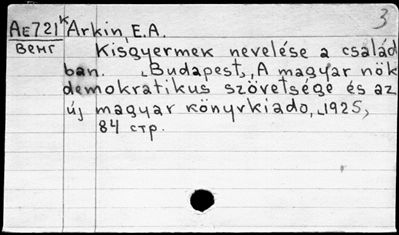 3
Ае721 к Arkin, E.A.
Венг
Kisgyermek nevelése a család
ban. „Budapest„, A magyar nök
demokratikus szövetsége és az
új magyar könyvkiado, „1925,
84 стр.